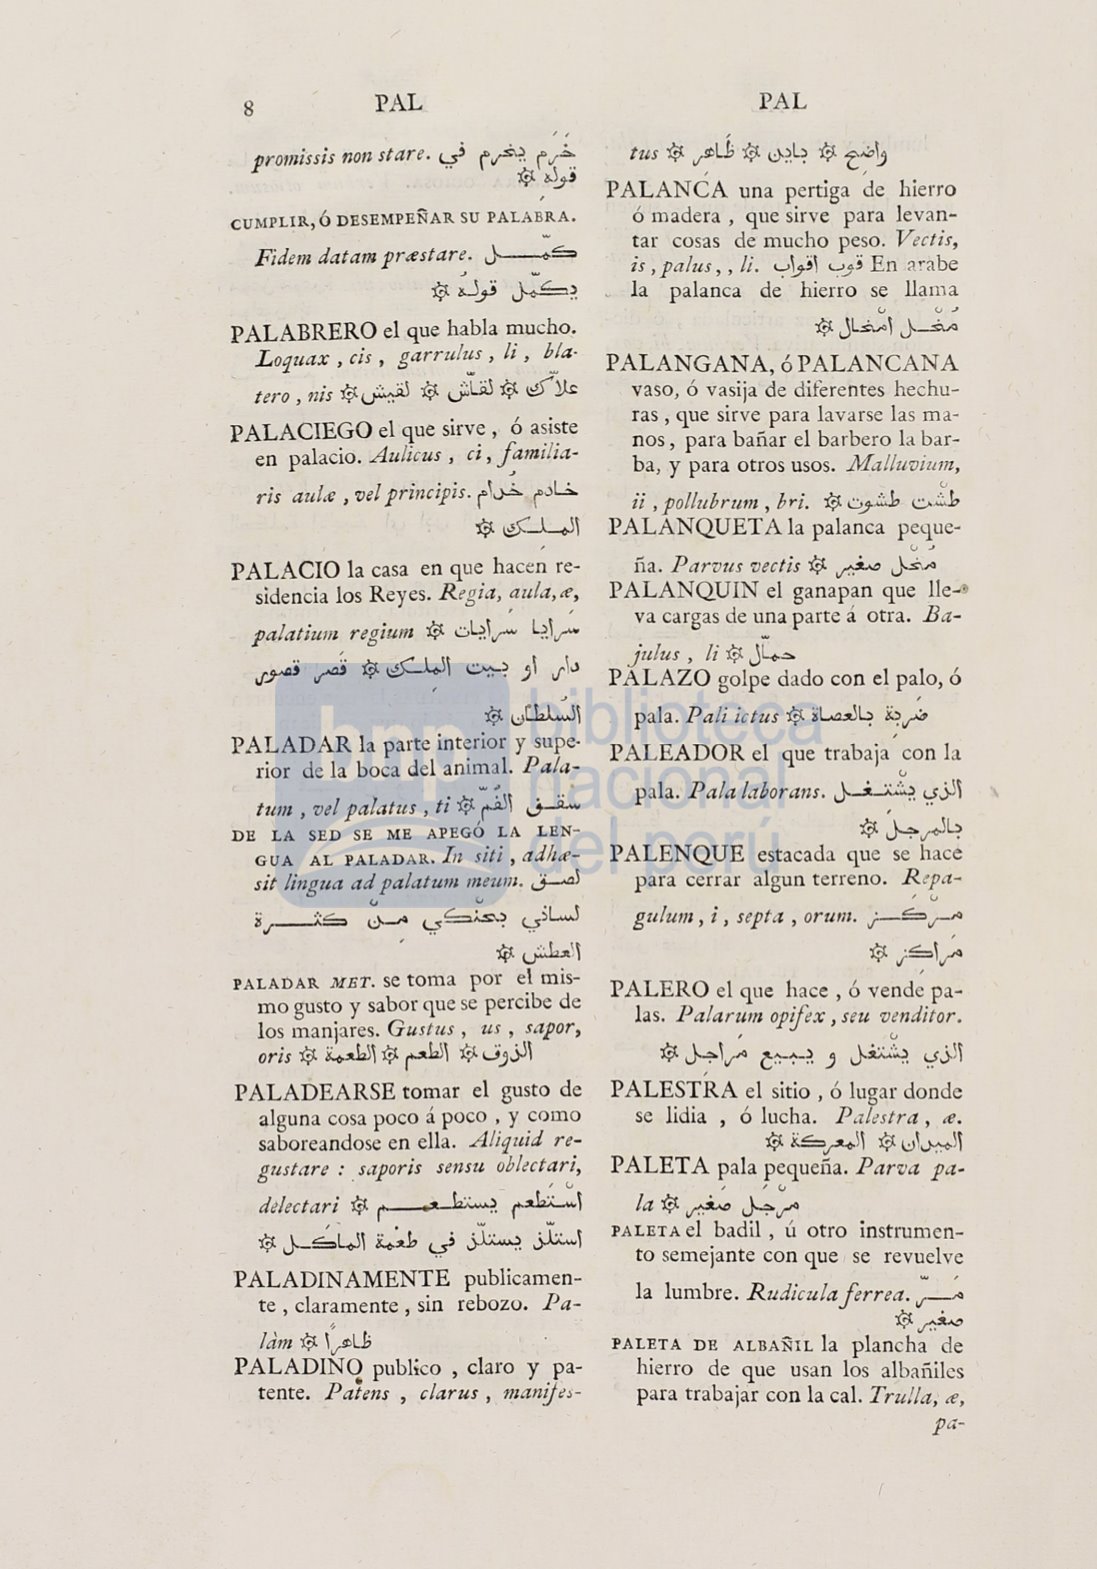 8 PAL PAL
promissis non stare. خَرَم يخرم في
قوله ۞
CUMPLIR, Ó DESEMPEÑAR SU PALABRA.
Fidem datam præstare. كمّل
يكمّل قوله ۞
PALABRERO el que habla mucho.
Loquax , cis , garrulus , li , bla-
tero , nis ۞ علاّك ۞ لقّاش ۞ لقيش
PALACIEGO el que sirve , ó asiste
en palacio. Aulicus , ci , familia-
ris aulæ , vel principis. خادم خُدام
الملك ۞
PALACIO la casa en que hacen re-
sidencia los Reyes. Regia, aula, æ,
palatium regium ۞ سرايا سرايات
دار او بيت الملك ۞ قصر قصور
السُلطان ۞
PALADAR la parte interior y supe-
rior de la boca del animal. Pala-
tum , vel palatus , ti ۞ سقف الفُمّ
DE LA SED SE ME APEGÓ LA LEN-
GUA AL PALADAR. In siti , adhæ-
sit lingua ad palatum meum. لصق
لساني بحنكي من كثرة
العطش ۞
PALADAR MET. se toma por el mis-
mo gusto y sabor que se percibe de
los manjares. Gustus , us , sapor,
oris ۞ الذوق ۞ الطعم ۞ الطعمة
PALADEARSE tomar el gusto de
alguna cosa poco á poco , y como
saboreandose en ella. Aliquid re-
gustare : saporis sensu oblectari,
delectari ۞ استطعم يستطعم
استلّز يستلّز في طعمة الماكل ۞
PALADINAMENTE publicamen-
te , claramente , sin rebozo. Pa-
làm ۞ ظاهراً
PALADINO publico , claro y pa-
tente. Patens , clarus , manifes-
tus ۞ واضح ۞ باين ۞ ظاهر
PALANCA una pertiga de hierro
ó madera , que sirve para levan-
tar cosas de mucho peso. Vectis,
is , palus , , li. قوب اقواب En arabe
la palanca de hierro se llama
مُخل امخال ۞
PALANGANA, ó PALANCANA
vaso, ó vasija de diferentes hechu-
ras , que sirve para lavarse las ma-
nos, para bañar el barbero la bar-
ba, y para otros usos. Malluvium,
ii , pollubrum , bri. طشت طشوت ۞
PALANQUETA la palanca peque-
ña. Parvus vectis ۞ مُخل صغير
PALANQUIN el ganapan que lle-
va cargas de una parte á otra. Ba-
julus , li ۞ حمّال
PALAZO golpe dado con el palo, ó
pala. Pali ictus ۞ ضربة بالعصاة
PALEADOR el que trabaja con la
pala. Pala laborans. الذي يشتغل
بالمرجل ۞
PALENQUE estacada que se hace
para cerrar algun terreno. Repa-
gulum , i , septa , orum. مركز
مراكز ۞
PALERO el que hace , ó vende pa-
las. Palarum opifex , seu venditor.
الذي يشتغل و يبيع مراجل ۞
PALESTRA el sitio , ó lugar donde
se lidia , ó lucha. Palestra , æ.
الميدان ۞ المعركة ۞
PALETA pala pequeña. Parva pa-
la ۞ مرجل صغير
PALETA el badil , ú otro instrumen-
to semejante con que se revuelve
la lumbre. Rudicula ferrea. مرّ
صغير ۞
PALETA DE ALBAÑIL la plancha de
hierro de que usan los albañiles
para trabajar con la cal. Trulla, æ,
pa-
bnp biblioteca
nacional
del perú